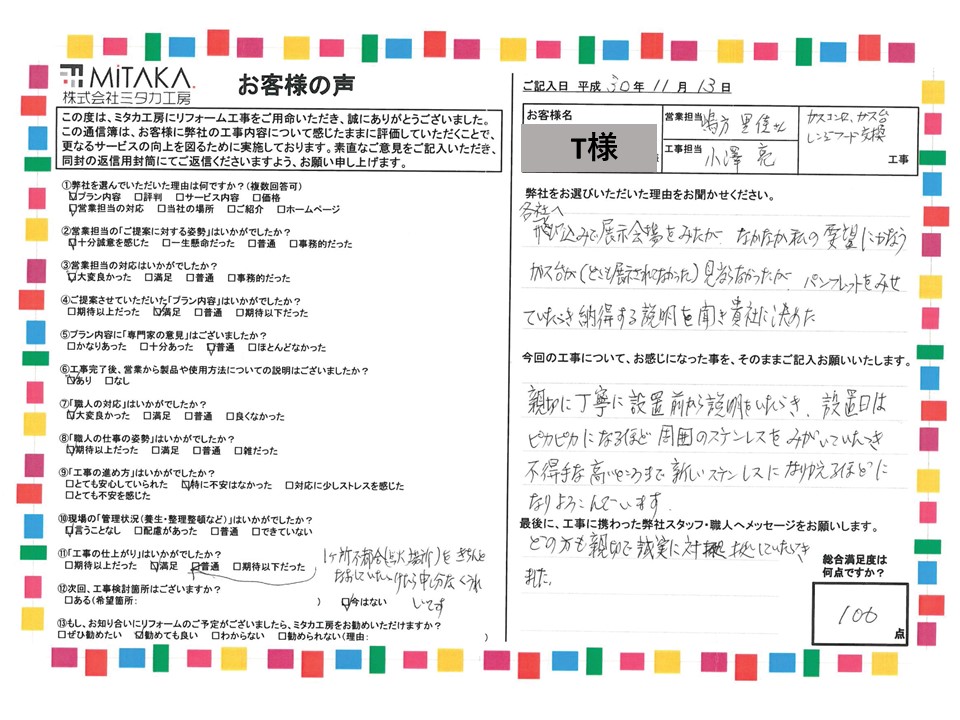 MiTAKA
株式会社ミタカ工房
お客様の声
この度は、ミタカ工房にリフォーム工事をご用命いただき、誠にありがとうございました。
この通信簿は、お客様に弊社の工事内容について感じたままに評価していただくことで、
更なるサービスの向上を図るために実施しております。素直なご意見をご記入いただき、
同封の返信用封筒にてご返信くださいますよう、お願い申し上げます。
①弊社を選んでいただいた理由は何ですか?(複数回答可)
☑プラン内容 □評判 □サービス内容 □価格
☑営業担当の対応 □当社の場所 □ご紹介 □ホームページ
②営業担当の「ご提案に対する姿勢」はいかがでしたか?
☑十分誠意を感じた □一生懸命だった □普通 □事務的だった
③営業担当の対応はいかがでしたか?
☑大変良かった □満足 □普通 □事務的だった
④ご提案させていただいた「プラン内容」はいかがでしたか?
□期待以上だった ☑満足 □普通 □期待以下だった
⑤プラン内容に「専門家の意見」はございましたか?
□かなりあった □十分あった ☑普通 □ほとんどなかった
⑥工事完了後、営業から製品や使用方法についての説明はございましたか?
☑あり □なし
⑦「職人の対応」はいかがでしたか?
☑大変良かった □満足 □普通 □良くなかった
⑧「職人の仕事の姿勢」はいかがでしたか?
☑期待以上だった □満足 □普通 □雑だった
⑨「工事の進め方」はいかがでしたか?
□とても安心していられた ☑特に不安はなかった □対応に少しストレスを感じた
□とても不安を感じた
⑩現場の「管理状況(養生・整理整頓など)」はいかがでしたか?
☑言うことなし □配慮があった □普通 □できていない
⑪「工事の仕上がり」はいかがでしたか?
□期待以上だった ☑満足 ☑普通 □期待以下だった
1ヶ所不都合(点火場所)をきちんと
お直していただけたら申し分なくうれ
しいです
⑫次回、工事検討箇所はございますか?
□ある(希望箇所: ) ☑今はない
⑬もし、お知り合いにリフォームのご予定がございましたら、ミタカ工房をお勧めいただけますか?
□ぜひ勧めたい ☑勧めても良い □わからない □勧められない(理由: )
ご記入日 平成 30年 11月 13日
お客様名
T様
営業担当
工事担当 小澤 亮
ガスコンロ、ガス台
レンジフード交換
工事
弊社をお選びいただいた理由をお聞かせください。
各社へ
飛び込みで展示会場をみたが なかなか私の要望にかなう
ガス台が(どこも展示されてなかった)見当らなかったが パンフレットをみせ
ていただき納得する説明を聞き貴社に決めた
今回の工事について、お感じになった事を、そのままご記入お願いいたします。
親切に丁寧に設置前から説明をいただき、設置日は
ピカピカになるほど周囲のステンレスをみがいていただき
不得手な高いところまで新しいステンレスになりかえるほどに
なりよろこんでいます.
最後に、工事に携わった弊社スタッフ・職人へメッセージをお願いします。
どの方も親切で誠実に対していただき
ました.
総合満足度は
何点ですか?
100
点